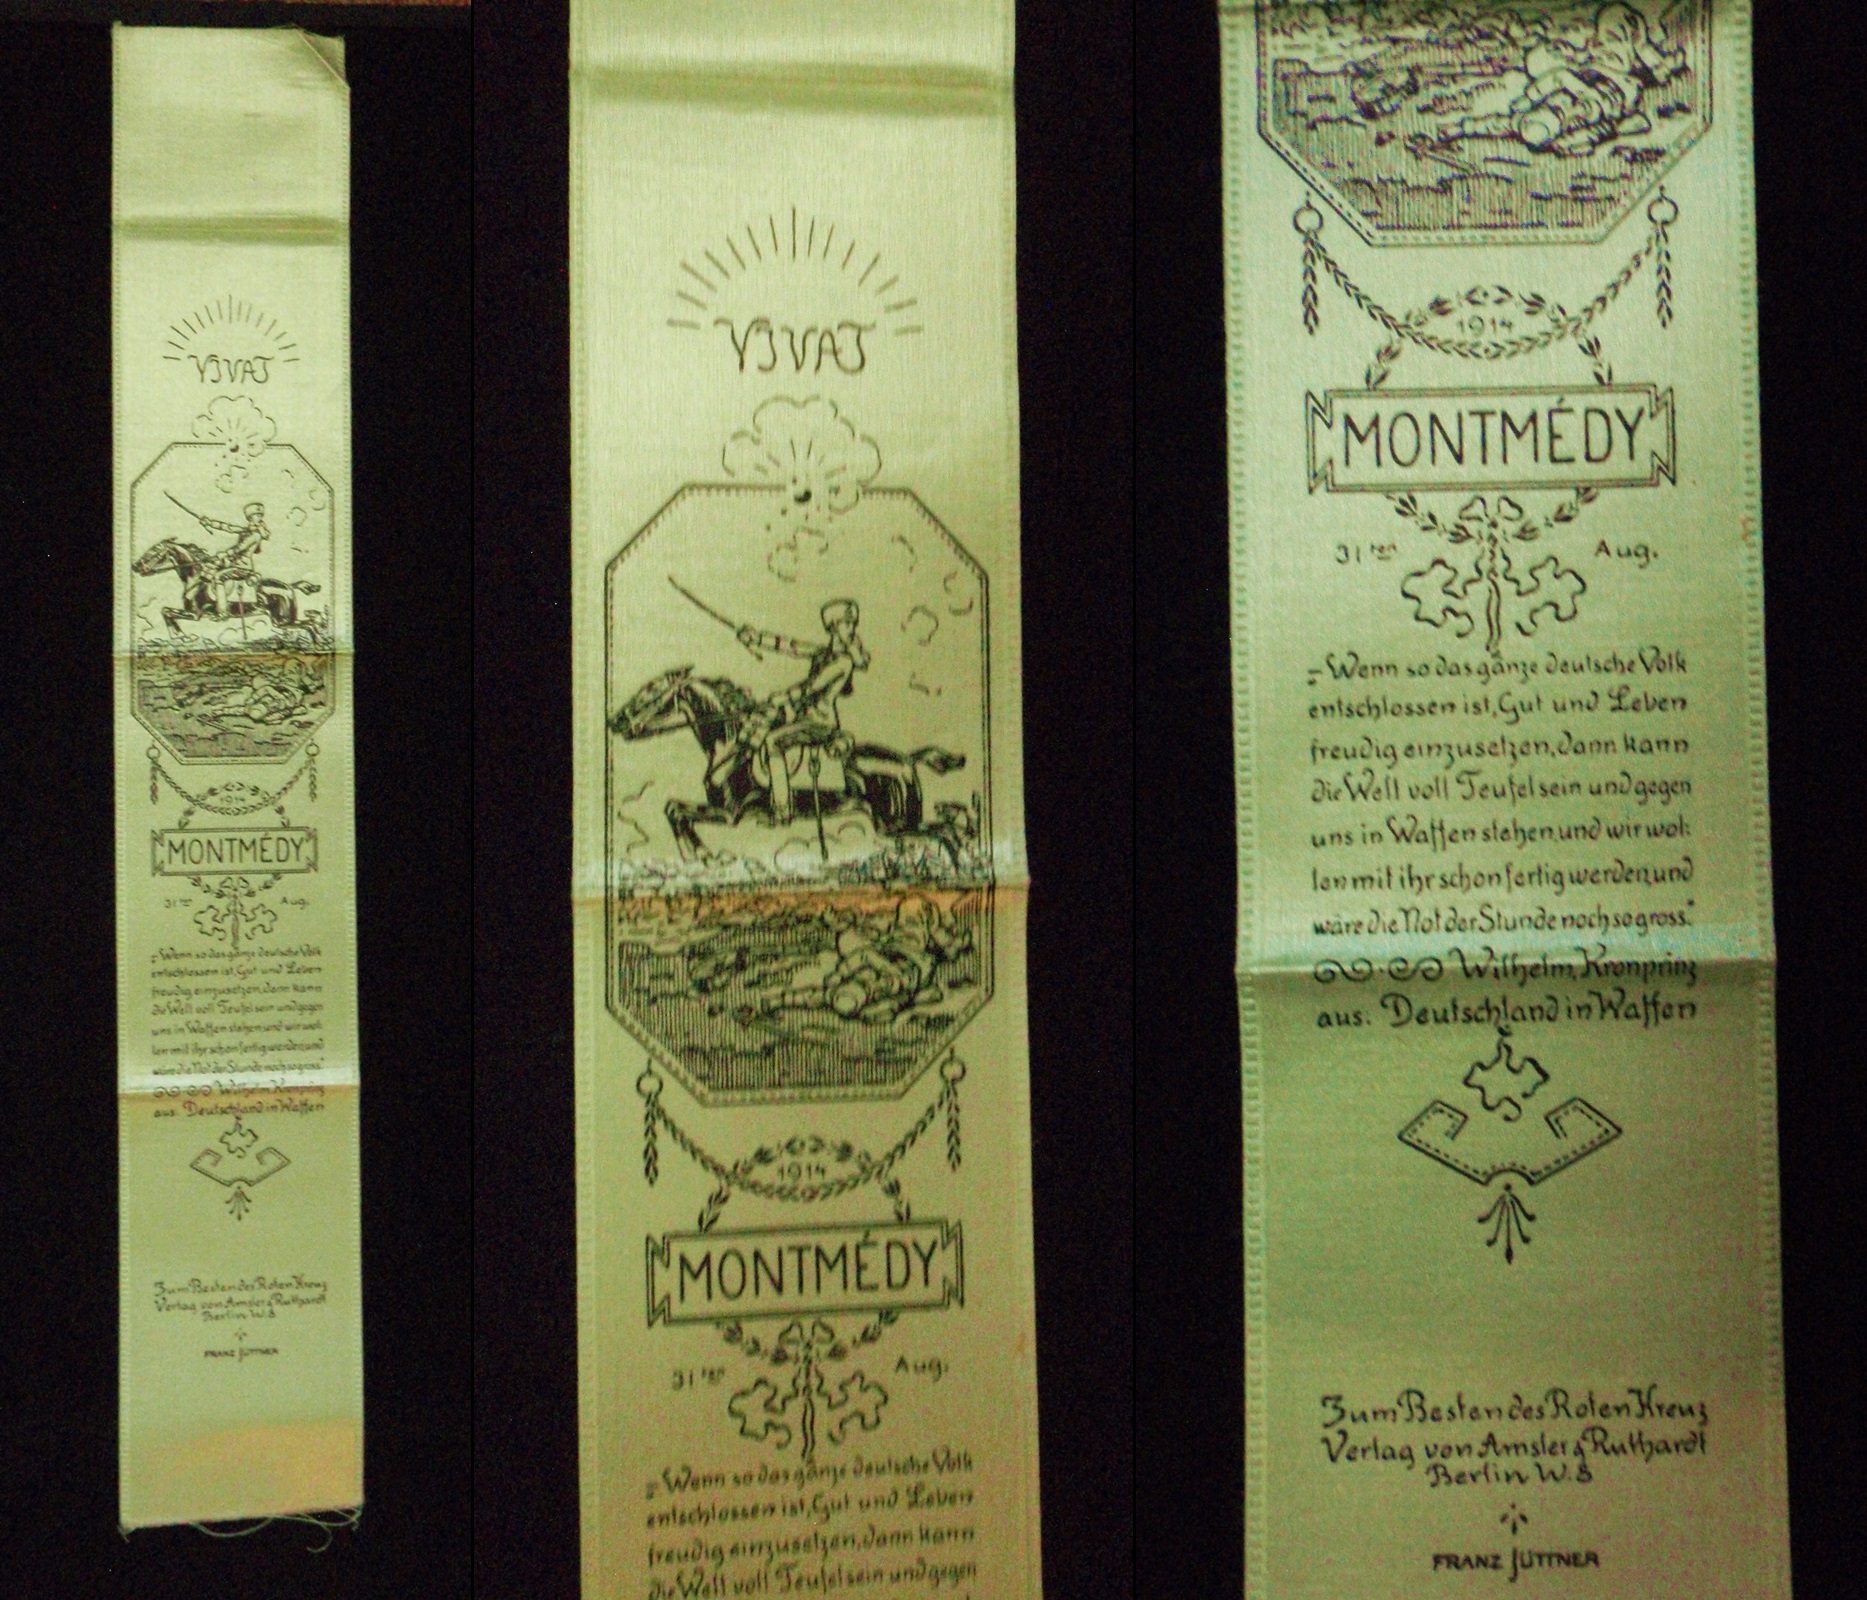 VIVAT
1914
MONTMÉDY
31ten Aug.
„Wenn so das gänze deutsche Volk
entschlossen ist, Gut und Leben
freudig einzusetzen, dann kann
die Welt voll Teufel sein und gegen
uns in Waffen stehen, und wir wol:
len mit ihr schon fertig werden, und
wäre die Not der Stunde noch so gross."
Wilhelm, Kronprinz
aus: Deutschland in Waffen
Zum Besten des Roten Kreuz
Verlag von Amsler & Ruthardt
Berlin W. 8
FRANZ JÜTTNER
VIVAT
1914
MONTMÉDY
31ten Aug.
„Wenn so das gänze deutsche Volk
entschlossen ist, Gut und Leben
freudig einzusetzen, dann kann
die Welt voll Teufel sein und gegen
1914
MONTMÉDY
31ten Aug.
„Wenn so das gänze deutsche Volk
entschlossen ist, Gut und Leben
freudig einzusetzen, dann kann
die Welt voll Teufel sein und gegen
uns in Waffen stehen, und wir wol:
len mit ihr schon fertig werden, und
wäre die Not der Stunde noch so gross."
Wilhelm, Kronprinz
aus: Deutschland in Waffen
Zum Besten des Roten Kreuz
Verlag von Amsler & Ruthardt
Berlin W. 8
FRANZ JÜTTNER